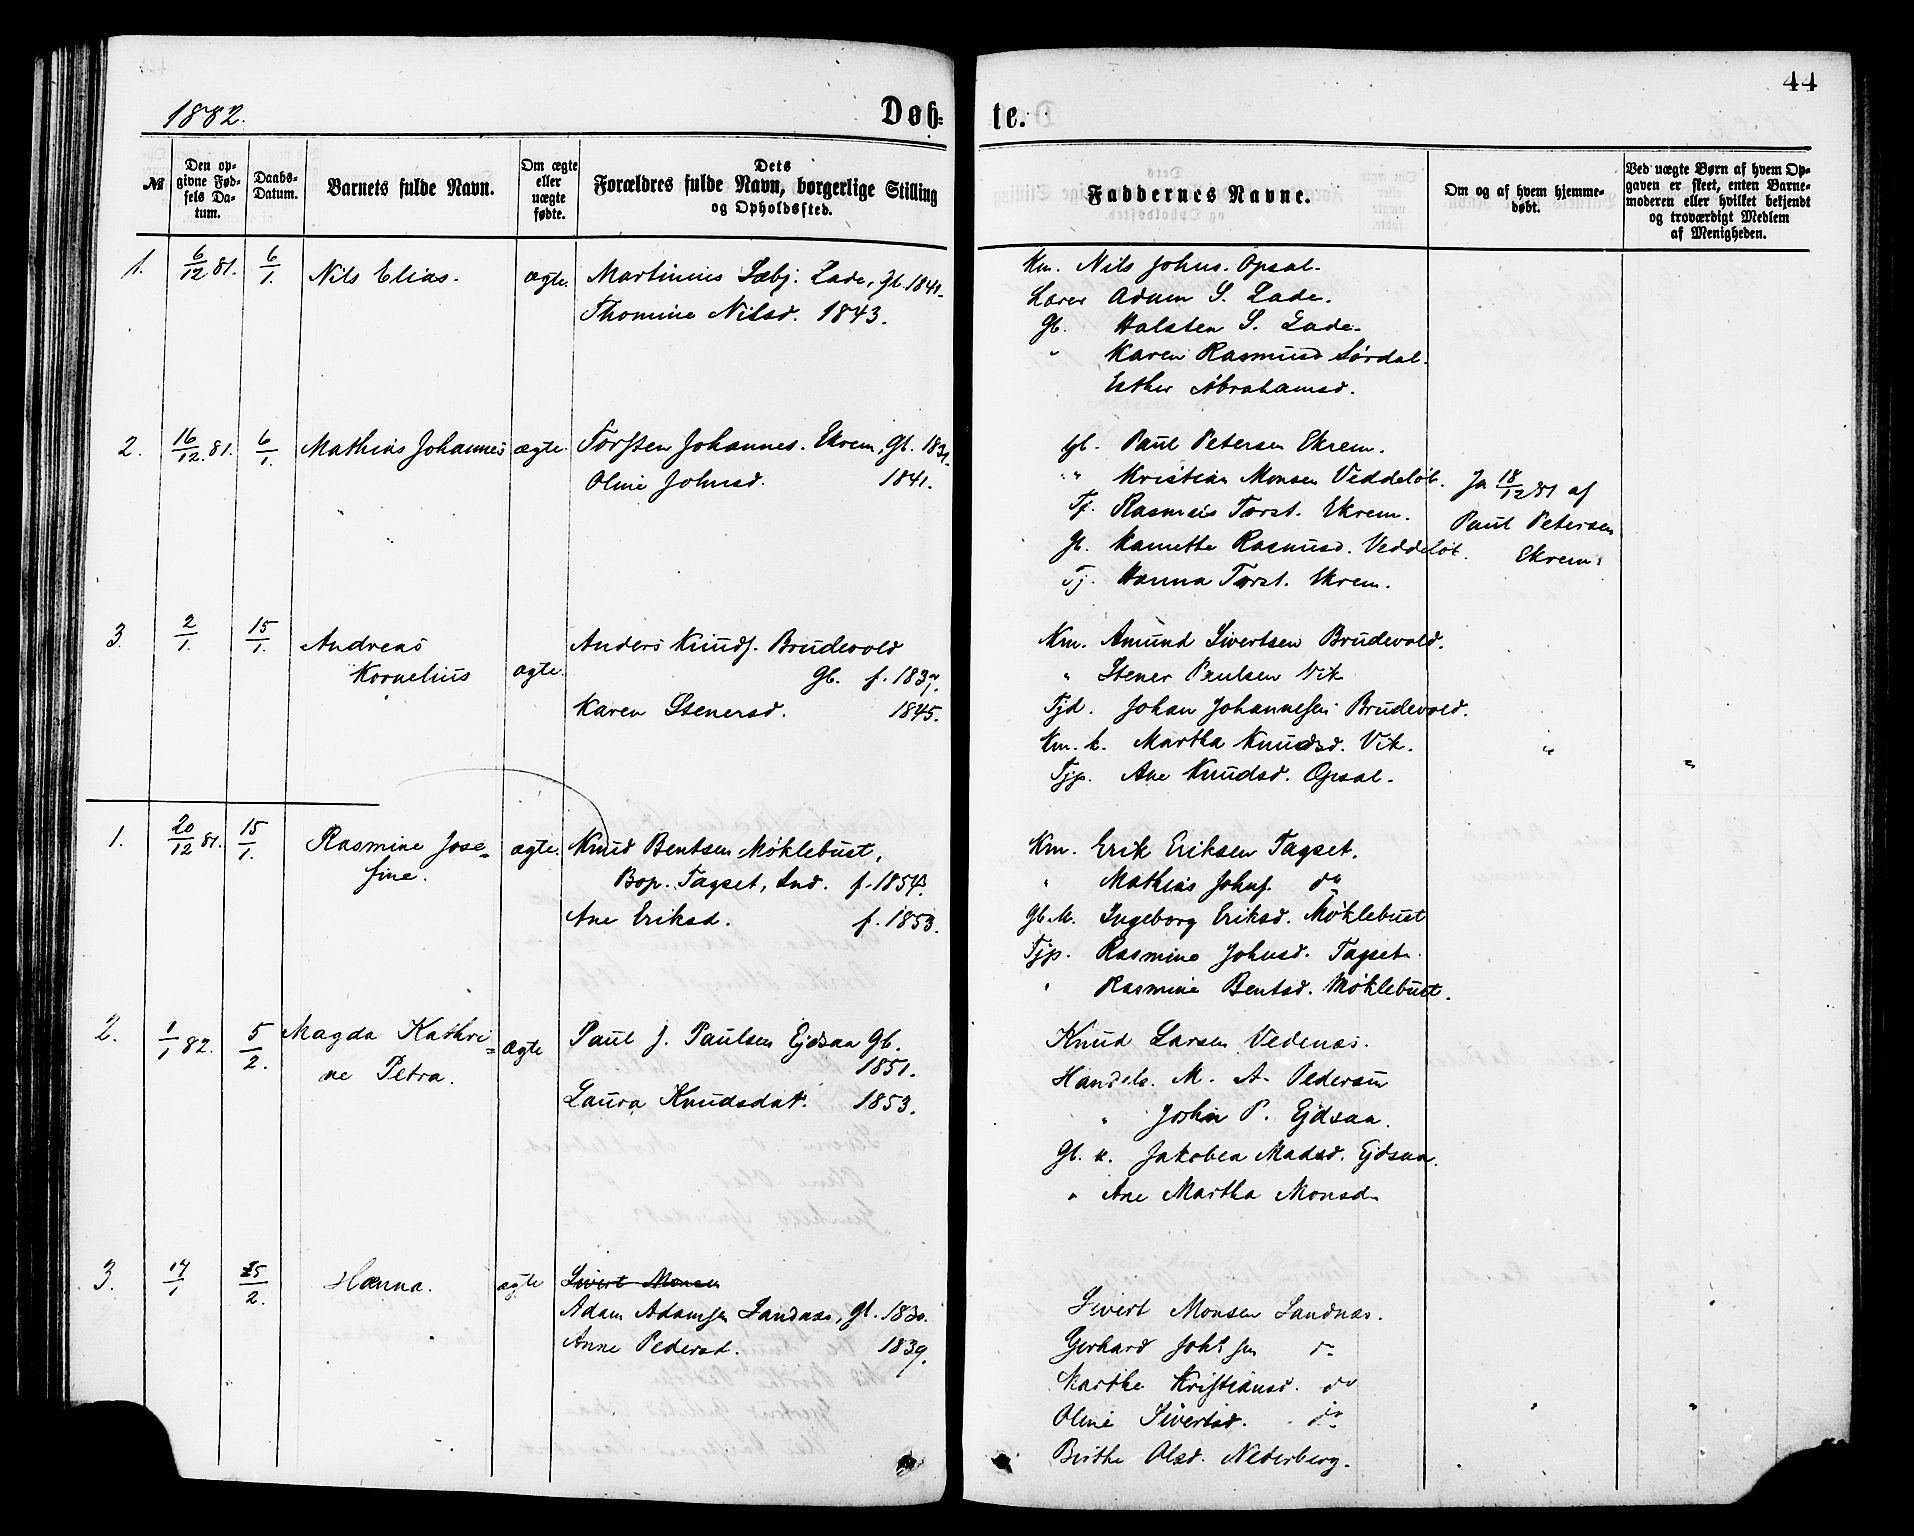 44
1882.
Døb-
te.
№
Den op-
givne Fød-
sels Da-
tum.
Daabs-
Datum.
Barnets fulde Navn.
Om ægte
eller
uægte
fødte.
Dets
Forældres fulde Navn, borgerlige Stilling
og Opholdssted.
Faddernes Navne.
Om og af hvem hjemme-
døbt.
Ved uægte Børn af hvem Op-
gaven er skeet, enten Barne-
moderen eller hvilket bekjendt
og troværdigt Medlem
af Menigheden.
1. 6/12 81. 6/1. Nils Elias. ægte. Martinus Sæbj. Lade, Gb. 1841.
Thomine Nilsd. 1843.
Km. Nils Johns. Opsal.
Lærer Adam S. Lade.
Gb. Halsten S. Lade.
" Karen Rasmusd Sørdal.
Esther Abrahamsd.
2. 16/12 81. 6/1. Mathias Johannes ægte. Torsten Johannes. Ekrem, Gb. 1834.
Oline Johnsd. 1841.
Gb. Paul Petersen Ekrem.
" Kristian Monsen Veddeløb.
Tj. Rasmus Torst. Ekrem.
Gb. Kanutte Rasmusd. Veddeløb.
Tj. Hanna Torst. Ekrem.
Ja 18/12 81 af
Paul Petersen
Ekrem.
3. 2/1. 15/1. Andreas
Kornelius ægte.
Anders Knuds. Brudevold
Gb. f. 1837.
Karen Stenersd. 1845.
Km. Amund Sivertsen Brudevold.
" Stener Paulsen Vik
Tjd. Johan Johannesen Brudevold.
Km. k. Martha Knudsd. Vik.
Tjp. Ane Knudsd. Opsal.
" "
1. 20/12 81. 15/1. Rasmine Jose-
fine. ægte.
Knud Bentsen Møklebust,
Bop. Tagset, Ind. f. 1854.
Ane Eriksd. f. 1853.
Km. Erik Eriksen Tagset.
" Mathias Johns. do
Gb. M. Ingeborg Eriksd. Møklebust
Tjp. Rasmine Johnsd. Tagset.
" Rasmine Bentsd. Møklebust.
2. 1/1 82. 5/2. Magda Kathri-
ne Petra. ægte
Paul J. Paulsen Ejdsaa Gb.
1851.
Laura Knudsdat. 1853.
Knud Larsen Vedenæs.
Handels. M. A. Pedersen
" John P. Ejdsaa.
Gb. k. Jakobea Madsd. Ejdsaa.
" Ane Martha Monsd.
3. 14/1 25/2. Hanna. ægte
Sivert Monsen
Adam Adamsen Landnæs, Gb. 1830.
Anne Pedersd. 1839.
Sivert Monsen Landnæs.
Gerhard Johs sen do
Marthe Kristiansd. do
Oline Sivertsd. do
Birthe Olsd. Nederberg.
" "